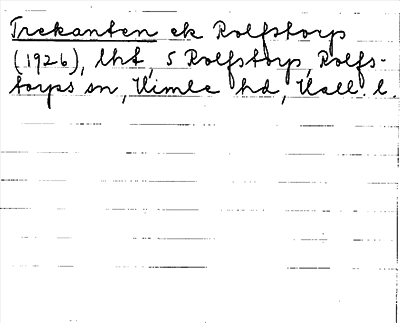 Trekanten ek Rolfstorp
(1926), lht, S Rolfstorp, Rolfs-
torps sn, Himle hd, Hall. l.